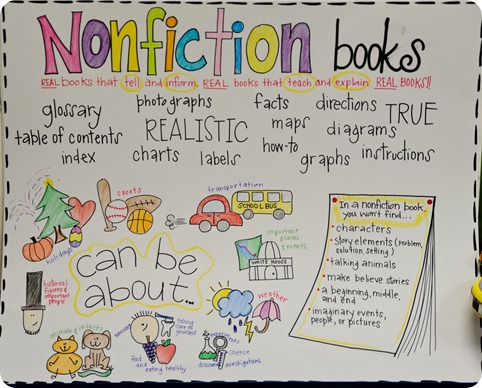 Nonfiction books
REAL books that tell and inform REAL books that teach and explain REAL BOOKS!!
glossary photographs facts directions TRUE
table of contents REALISTIC maps diagrams
index charts labels how-to graphs instructions
sports
transportation
SCHOOL BUS
holidays
can be about...
important places & events
WHITE HOUSE
historical figures & important people
weather
animals & insects
families
taking care of yourself
food and eating healthy
experiments
science
discoveries
investigations
In a nonfiction book, you won't find...
• characters
• story elements (problem, solution, setting)
• talking animals
• make believe stories
• a beginning, middle, and end
• imaginary events, people, or pictures